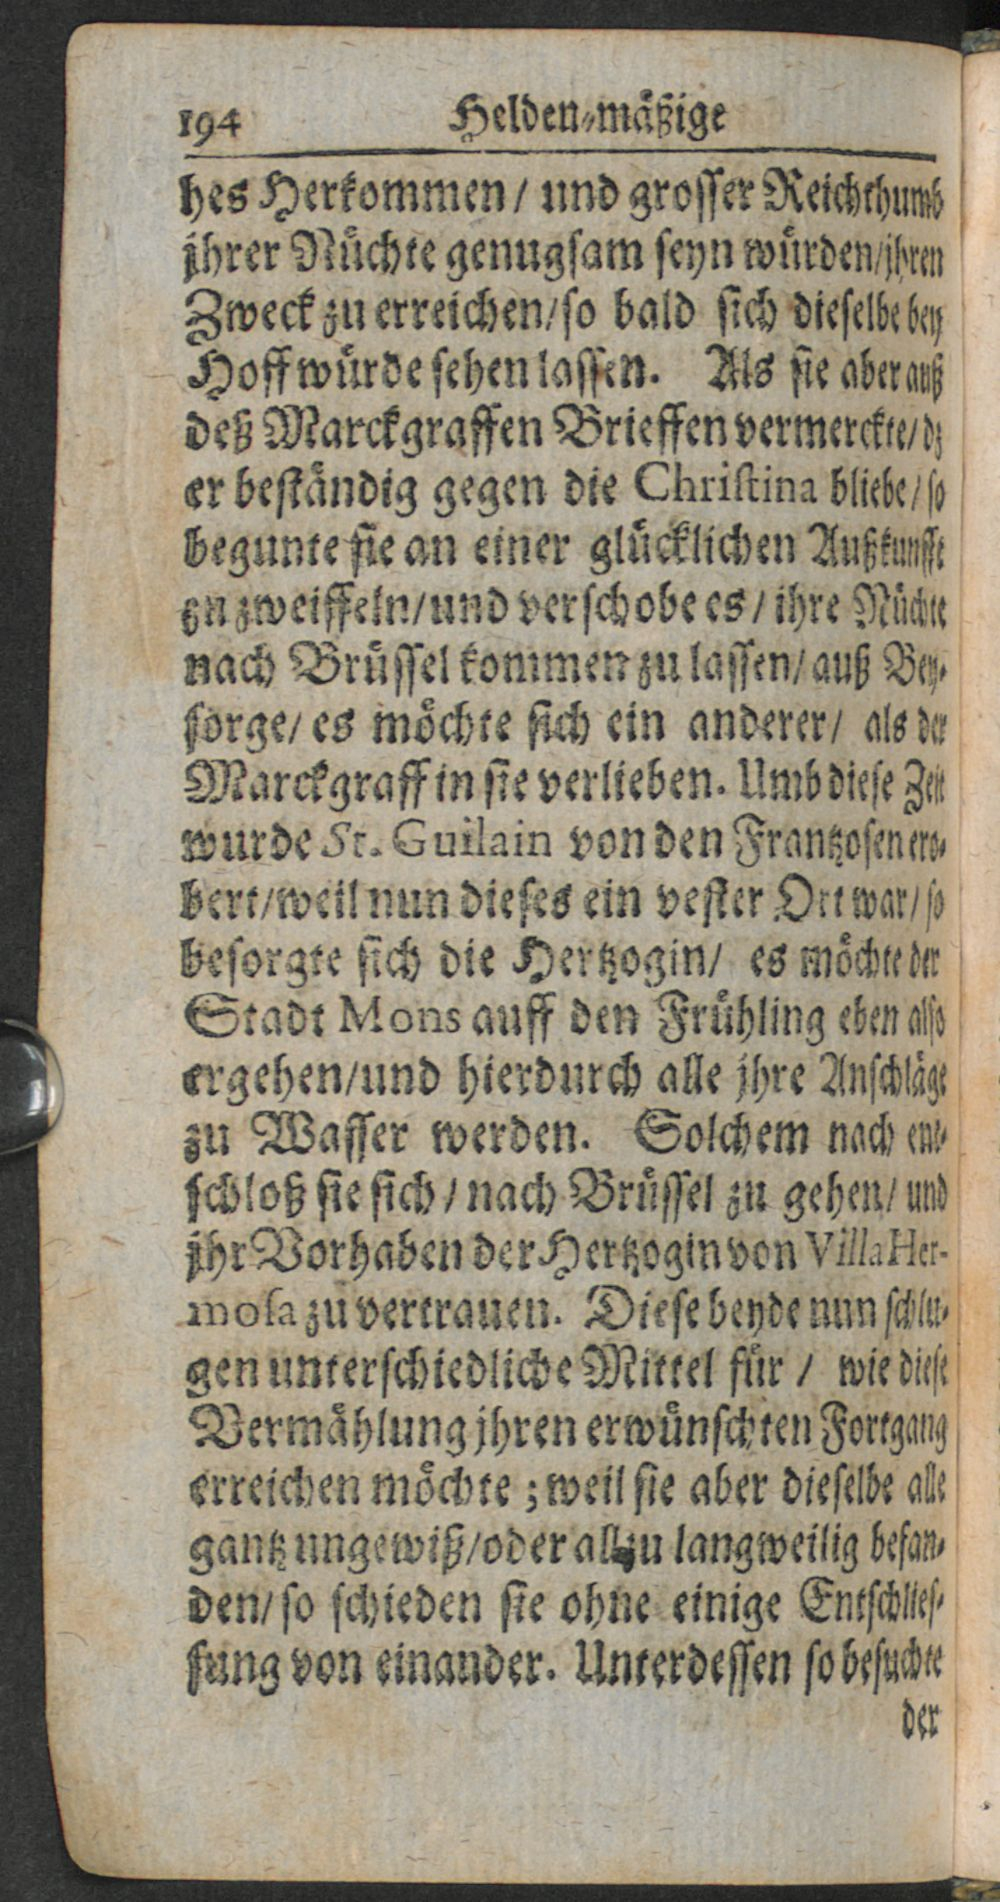 194 Helden-mäßige
hes Herkommen/ und grosser Reichthumb
jhrer Nüchte genugsam seyn würden/jhren
Zweck zu erreichen/so bald sich dieselbe bey
Hoff würde sehen lassen. Als sie aber auß
deß Marckgraffen Brieffen vermerckte/ dz
er beständig gegen die Christina bliebe/ so
begunte sie an einer glücklichen Außkunfft
zn zweiffeln/und verschobe es/ ihre Nüchte
nach Brüssel kommen zu lassen/ auß Bey-
sorge/ es möchte sich ein anderer/ als der
Marckgraff in sie verlieben. Umb diese Zeit
wurde St. Guilain von den Frantzosen ero-
bert/weil nun dieses ein vester Ort war/ so
besorgte sich die Hertzogin/ es möchte der
Stadt Mons auff den Frühling eben also
ergehen/und hierdurch alle jhre Anschläge
zu Wasser werden. Solchem nach ent-
schloß sie sich/ nach Brüssel zu gehen/ und
jhr Vorhaben der Hertzogin von Villa Her-
mosa zu vertrauen. Diese beyde nun schlu-
gen unterschiedliche Mittel für/ wie diese
Vermählung jhren erwünschten Fortgang
erreichen möchte; weil sie aber dieselbe alle
gantz ungewiß/oder allzu langweilig befan-
den/ so schieden sie ohne einige Entschlies-
sung von einander. Unterdessen so besuchte
der